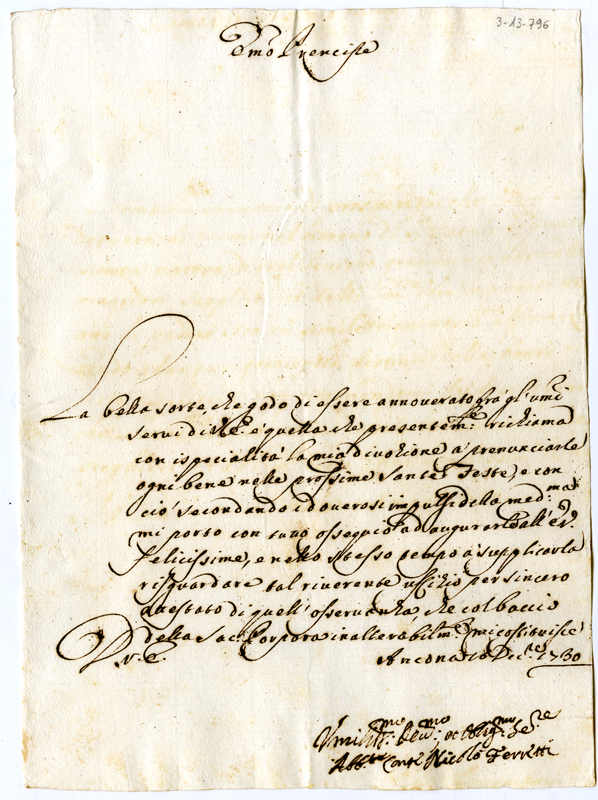 3-13-796
Emo Prencipe
La bella sorte, che godo di essere annoverato frà gl'umi
servi di V.E. è quella che presentem:te richiama
con ispecialità la mia divozione a prenunciarle
ogni bene nelle prossime Sante Feste, e con
ciò secondando i doverosi impulsi della med:ma
mi porto con tutto ossequio ad augurarle all'E.V.
felicissime, e nello stesso tempo à supplicarla
risguardare tal riverente uffizio per sincero
attestato di quell'osservanza, che col baccio
della Sac: Porpora inalterabilm:e mi costituisce
D. V. E. Ancona 10 Dec:re 1730
Umiliss:mo Dev:mo et Obblig:mo Se:re
Abb:te Conte Nicolò Ferretti